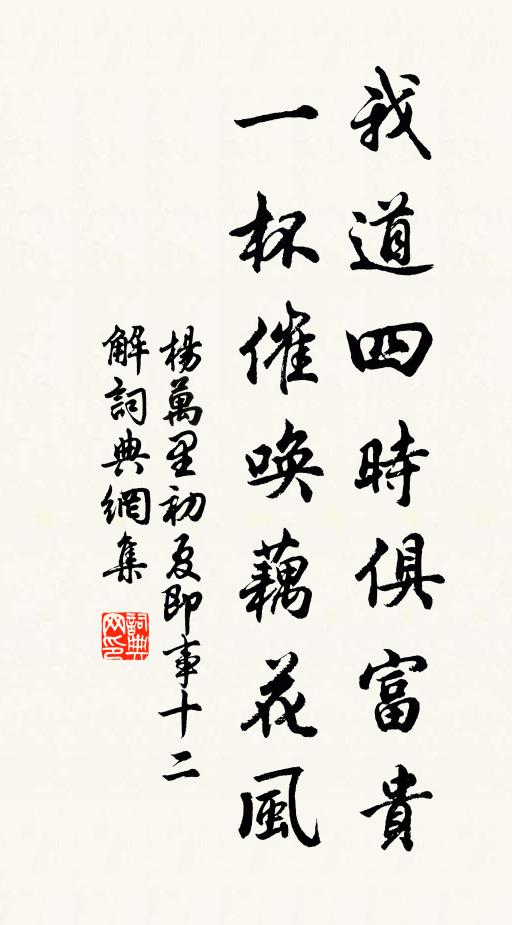 我道四時俱富貴
一杯催喚藕花風
楊萬里初夏即事十二
解詞典網集
詞典
网印